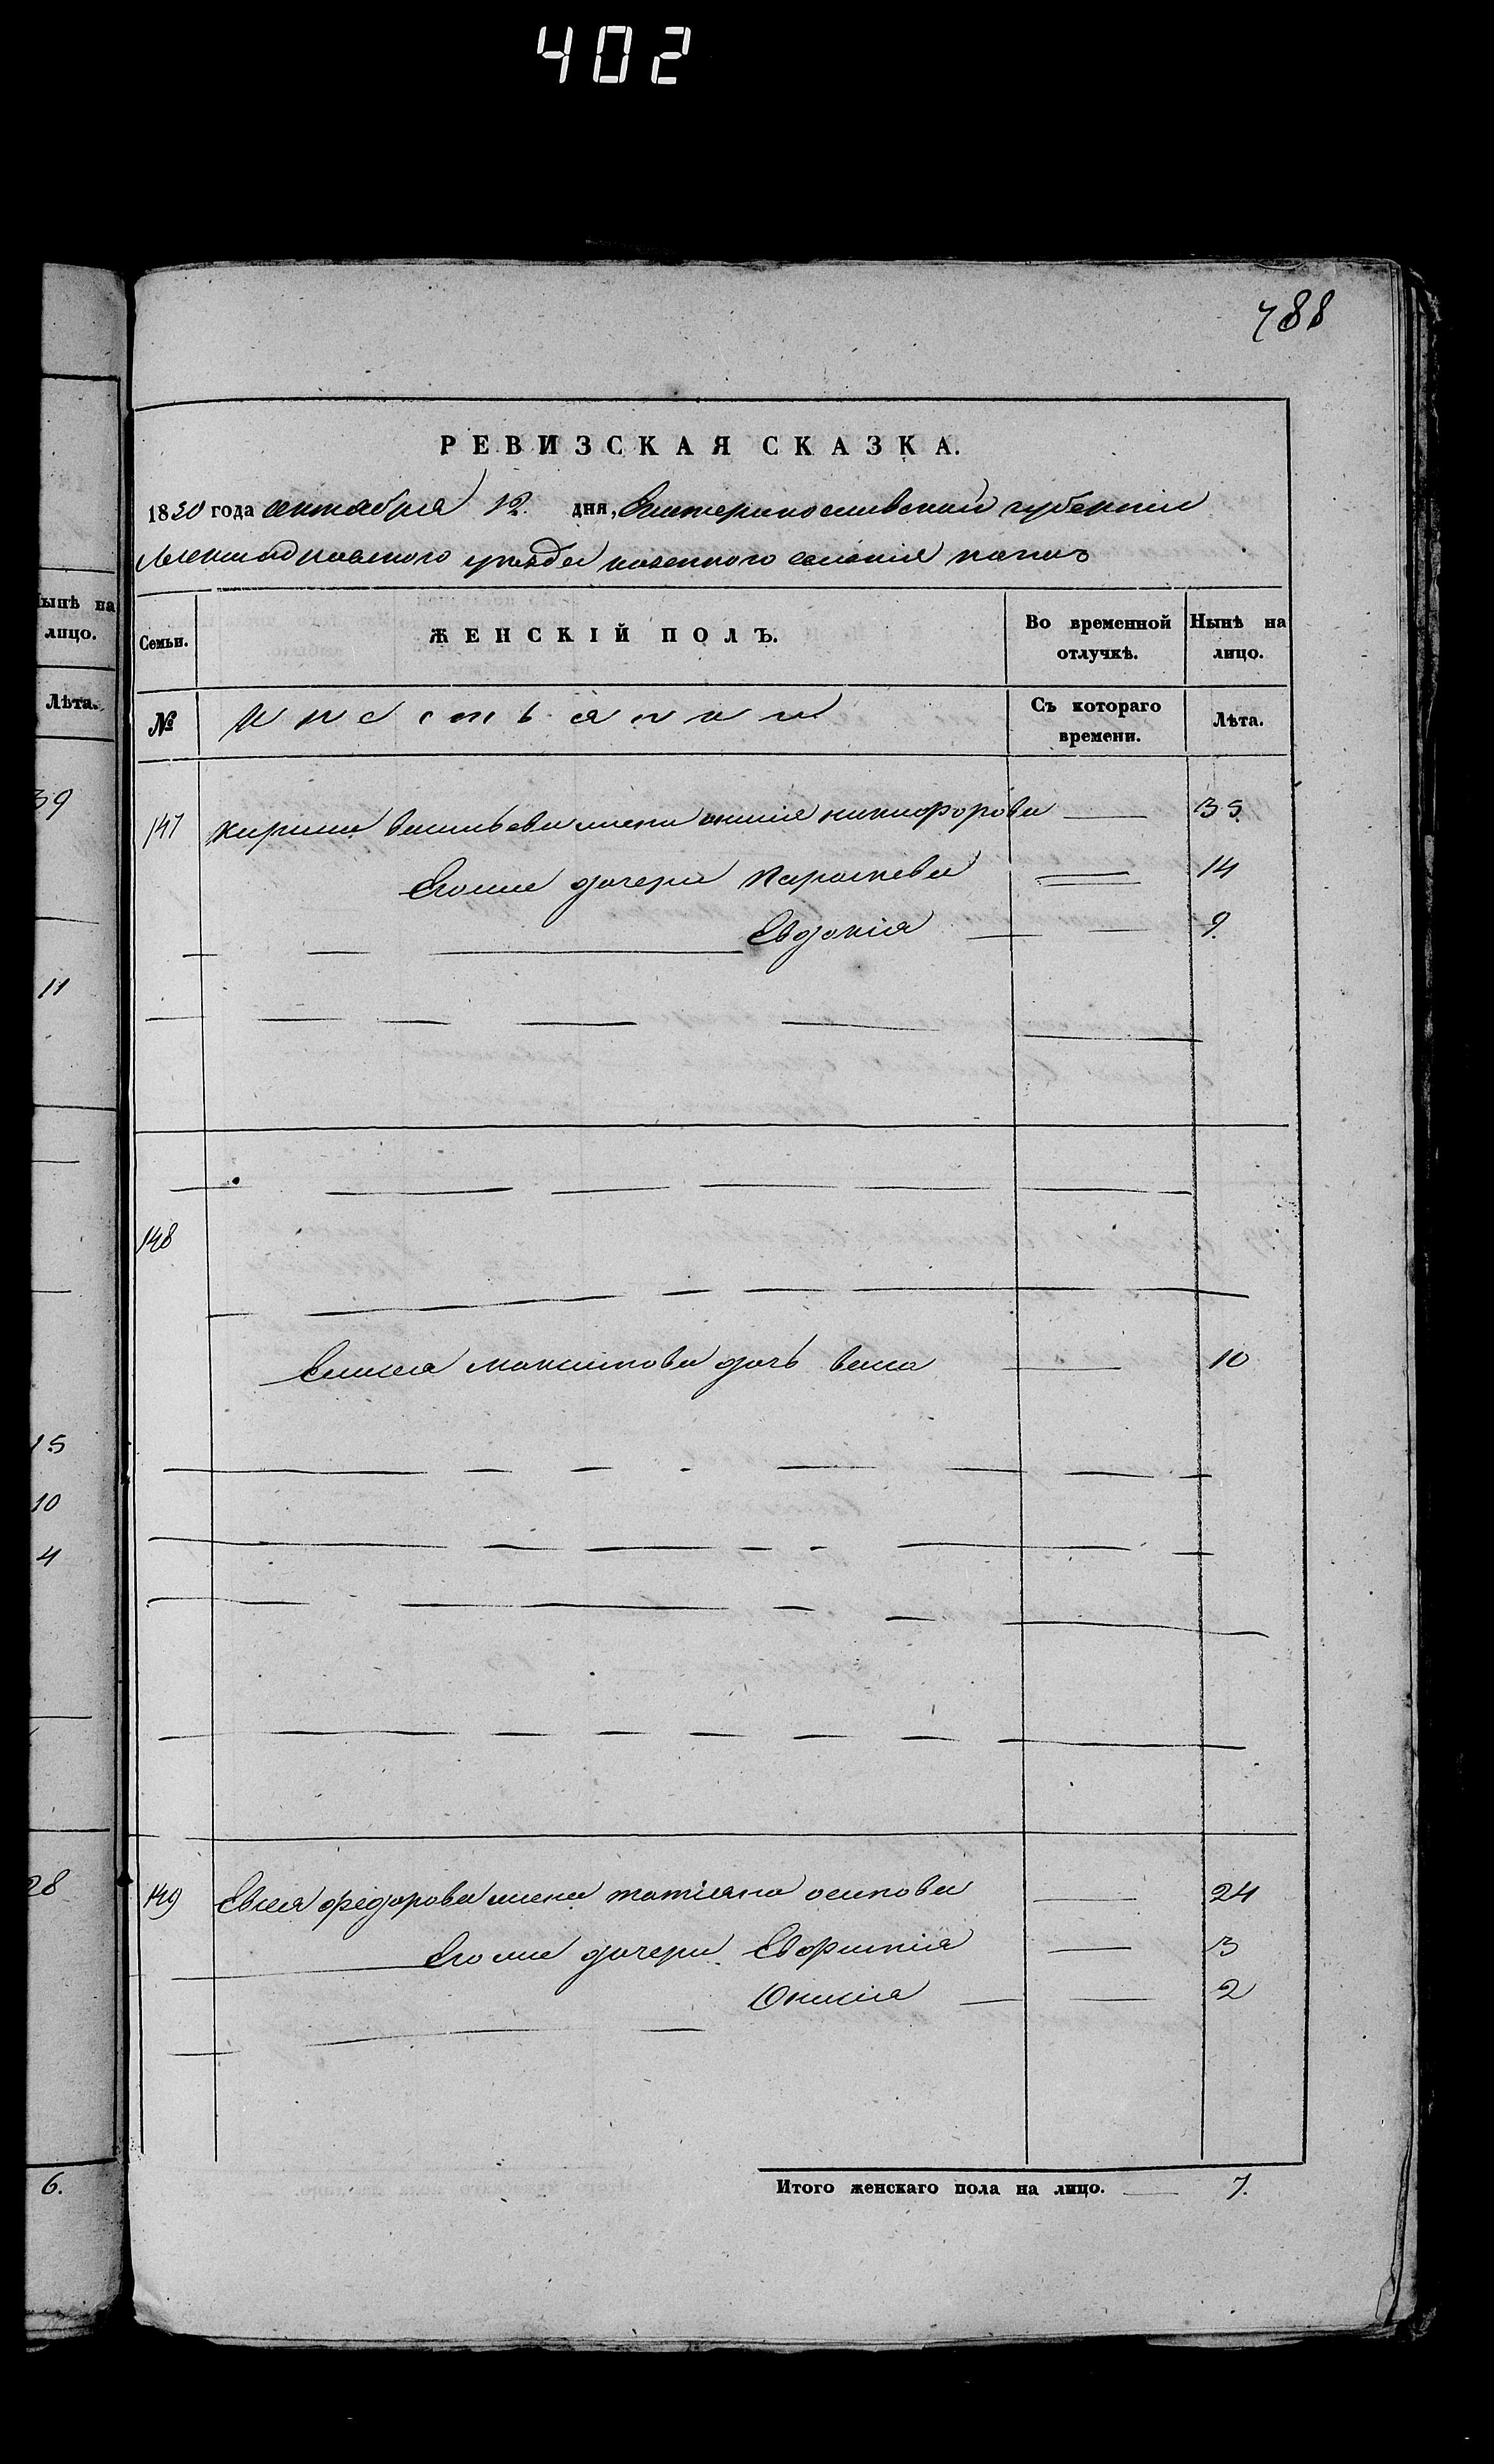 402
788
РЕВИЗСКАЯ СКАЗКА.
1850 года октября 12. дня, Екатеринославской губернии
Александровского уезда казенного селения
Семьи. ЖЕНСКІЙ ПОЛЪ. Во временной отлучкѣ. Нынѣ на лицо.
№ крестьянки Съ котораго времени. Лѣта.
147 Кирила васильева жена никифорова — 35
Егоже дочери Параскева — 14
Евдокія — 9.
148
максимова дочь васа — 10
149 Евсея федорова жена татіяна осипова — 24
Егоже дочери Евфимія — 3
— 2
Итого женскаго пола на лицо. — 7.
Нынѣ на
лицо.
Лѣта.
39
11
15
10
4
28
6.